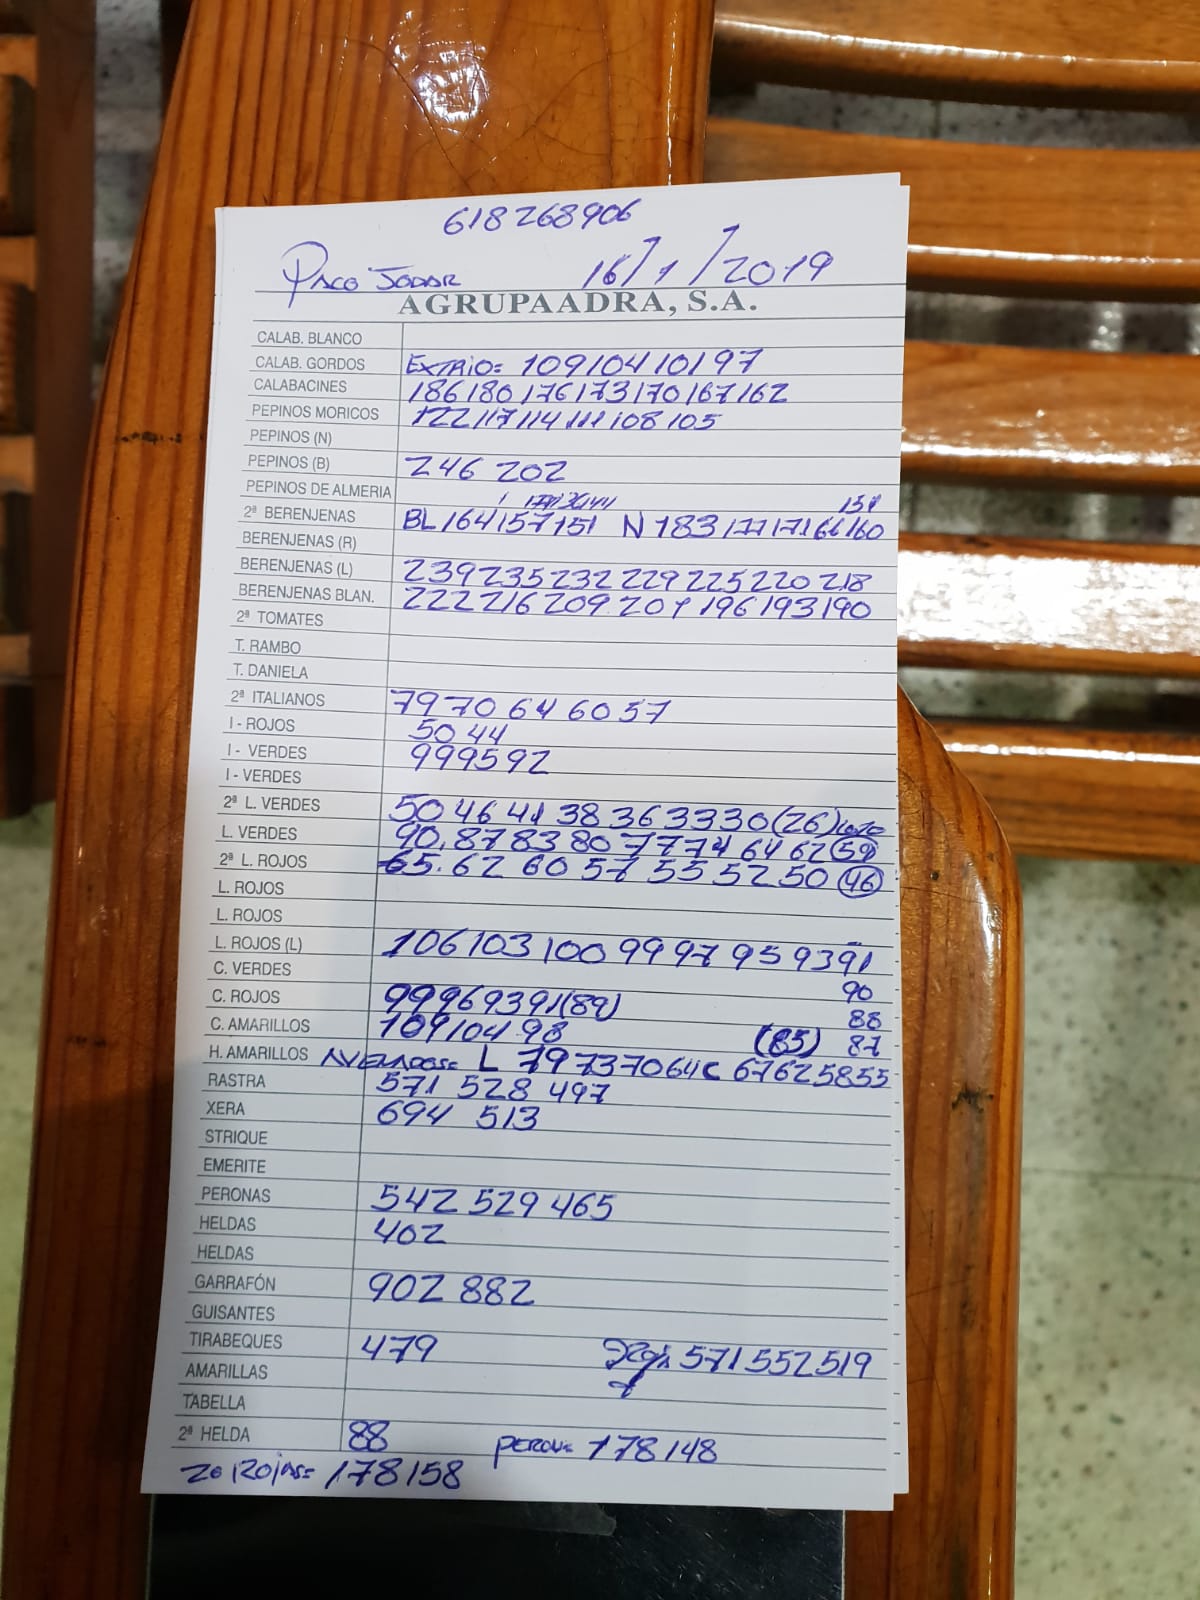 618268906
PACO JODAR 16/1/2019
AGRUPAADRA, S.A.
CALAB. BLANCO
CALAB. GORDOS EXTRIO= 109 104 101 97
CALABACINES 186 180 176 173 170 167 162
PEPINOS MORICOS 122 117 114 111 108 105
PEPINOS (N)
PEPINOS (B) 246 202
PEPINOS DE ALMERIA
2ª BERENJENAS BL 164 157 151 N 183 177 171 166 160
BERENJENAS (R)
BERENJENAS (L) 239 235 232 229 225 220 218
BERENJENAS BLAN. 222 216 209 201 196 193 190
2ª TOMATES
T. RAMBO
T. DANIELA
2ª ITALIANOS 79 70 64 60 57
I - ROJOS 50 44
I - VERDES 99 95 92
I - VERDES
2ª L. VERDES 50 46 41 38 36 33 30 (26)
L. VERDES 90. 87 83 80 77 74 64 62 (59)
2ª L. ROJOS 65. 62 60 57 55 52 50 (46)
L. ROJOS
L. ROJOS
L. ROJOS (L) 106 103 100 99 97 95 93 91
C. VERDES 90
C. ROJOS 99 96 93 91 (89) 88
C. AMARILLOS 109 104 98 (85) 87
H. AMARILLOS L 79 73 70 64 C 67 62 58 55
RASTRA 571 528 497
XERA 694 513
STRIQUE
EMERITE
PERONAS 542 529 465
HELDAS 402
HELDAS
GARRAFÓN 902 882
GUISANTES
TIRABEQUES 479 571 552 519
AMARILLAS
TABELLA
2ª HELDA 88 PERON= 178 148
ROJAS= 178 158